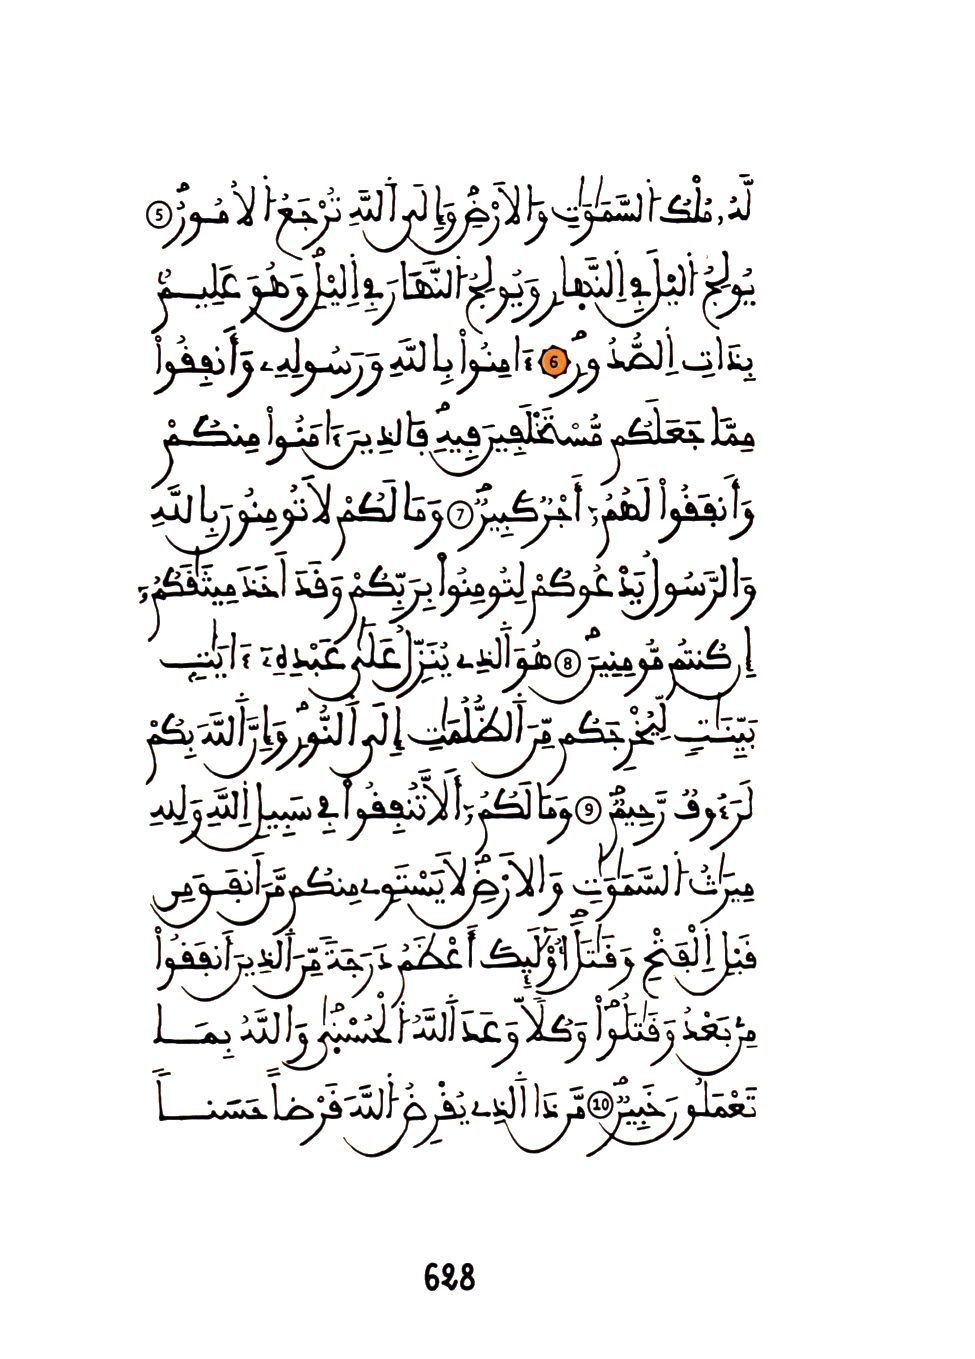 لَّهُۥ مُلْكُ اُ۬لسَّمَٰوَٰتِ وَالَارْضِۖ وَإِلَي اَ۬للَّهِ تُرْجَعُ اُ۬لُامُورُۖ 5
يُولِجُ اُ۬ليْلَ فِے اِ۬لنَّه۪ارِ وَيُولِجُ اُ۬لنَّهَارَ فِے اِ۬ليْلِۖ وَهُوَ عَلِيمُۢ
بِذَاتِ اِ۬لصُّدُورِۖ 6 ءَامِنُواْ بِاللَّهِ وَرَسُولِهِۦ وَأَنفِقُواْ
مِمَّا جَعَلَكُم مُّسْتَخْلَفِينَ فِيهِۖ فَالذِينَ ءَامَنُواْ مِنكُمْ
وَأَنفَقُواْ لَهُمُۥٓ أَجْرٞ كَبِيرٞۖ 7 وَمَا لَكُمْ لَا تُومِنُونَ بِاللَّهِ
وَالرَّسُولُ يَدْعُوكُمْ لِتُومِنُواْ بِرَبِّكُمْ وَقَدَ اَخَذَ مِيثَٰقَكُمُۥٓ
إِن كُنتُم مُّومِنِينَۖ 8 هُوَ اَ۬لذِے يُنَزِّلُ عَلَيٰ عَبْدِهِۦٓ ءَايَٰتِۢ
بَيِّنَٰتٖ لِّيُخْرِجَكُم مِّنَ اَ۬لظُّلُمَٰتِ إِلَي اَ۬لنُّورِۖ وَإِنَّ اَ۬للَّهَ بِكُمْ
لَرَءُوفٞ رَّحِيمٞۖ 9 وَمَا لَكُمُۥٓ أَلَّا تُنفِقُواْ فِے سَبِيلِ اِ۬للَّهِ وَلِلهِ
مِيرَٰثُ اُ۬لسَّمَٰوَٰتِ وَالَارْضِۖ لَا يَسْتَوِے مِنكُم مَّنَ اَنفَقَ مِن
قَبْلِ اِ۬لْفَتْحِ وَقَٰتَلَۖ أُوْلَٰٓئِكَ أَعْظَمُ دَرَجَةٗ مِّنَ اَ۬لذِينَ أَنفَقُواْ
مِنۢ بَعْدُ وَقَٰتَلُواْۖ وَكُلّاٗ وَعَدَ اَ۬للَّهُ اُ۬لْحُسْن۪يٰۖ وَاللَّهُ بِمَا
تَعْمَلُونَ خَبِيرٞۖ 10 مَّن ذَا اَ۬لذِے يُقْرِضُ اُ۬للَّهَ قَرْضاً حَسَناٗ
628